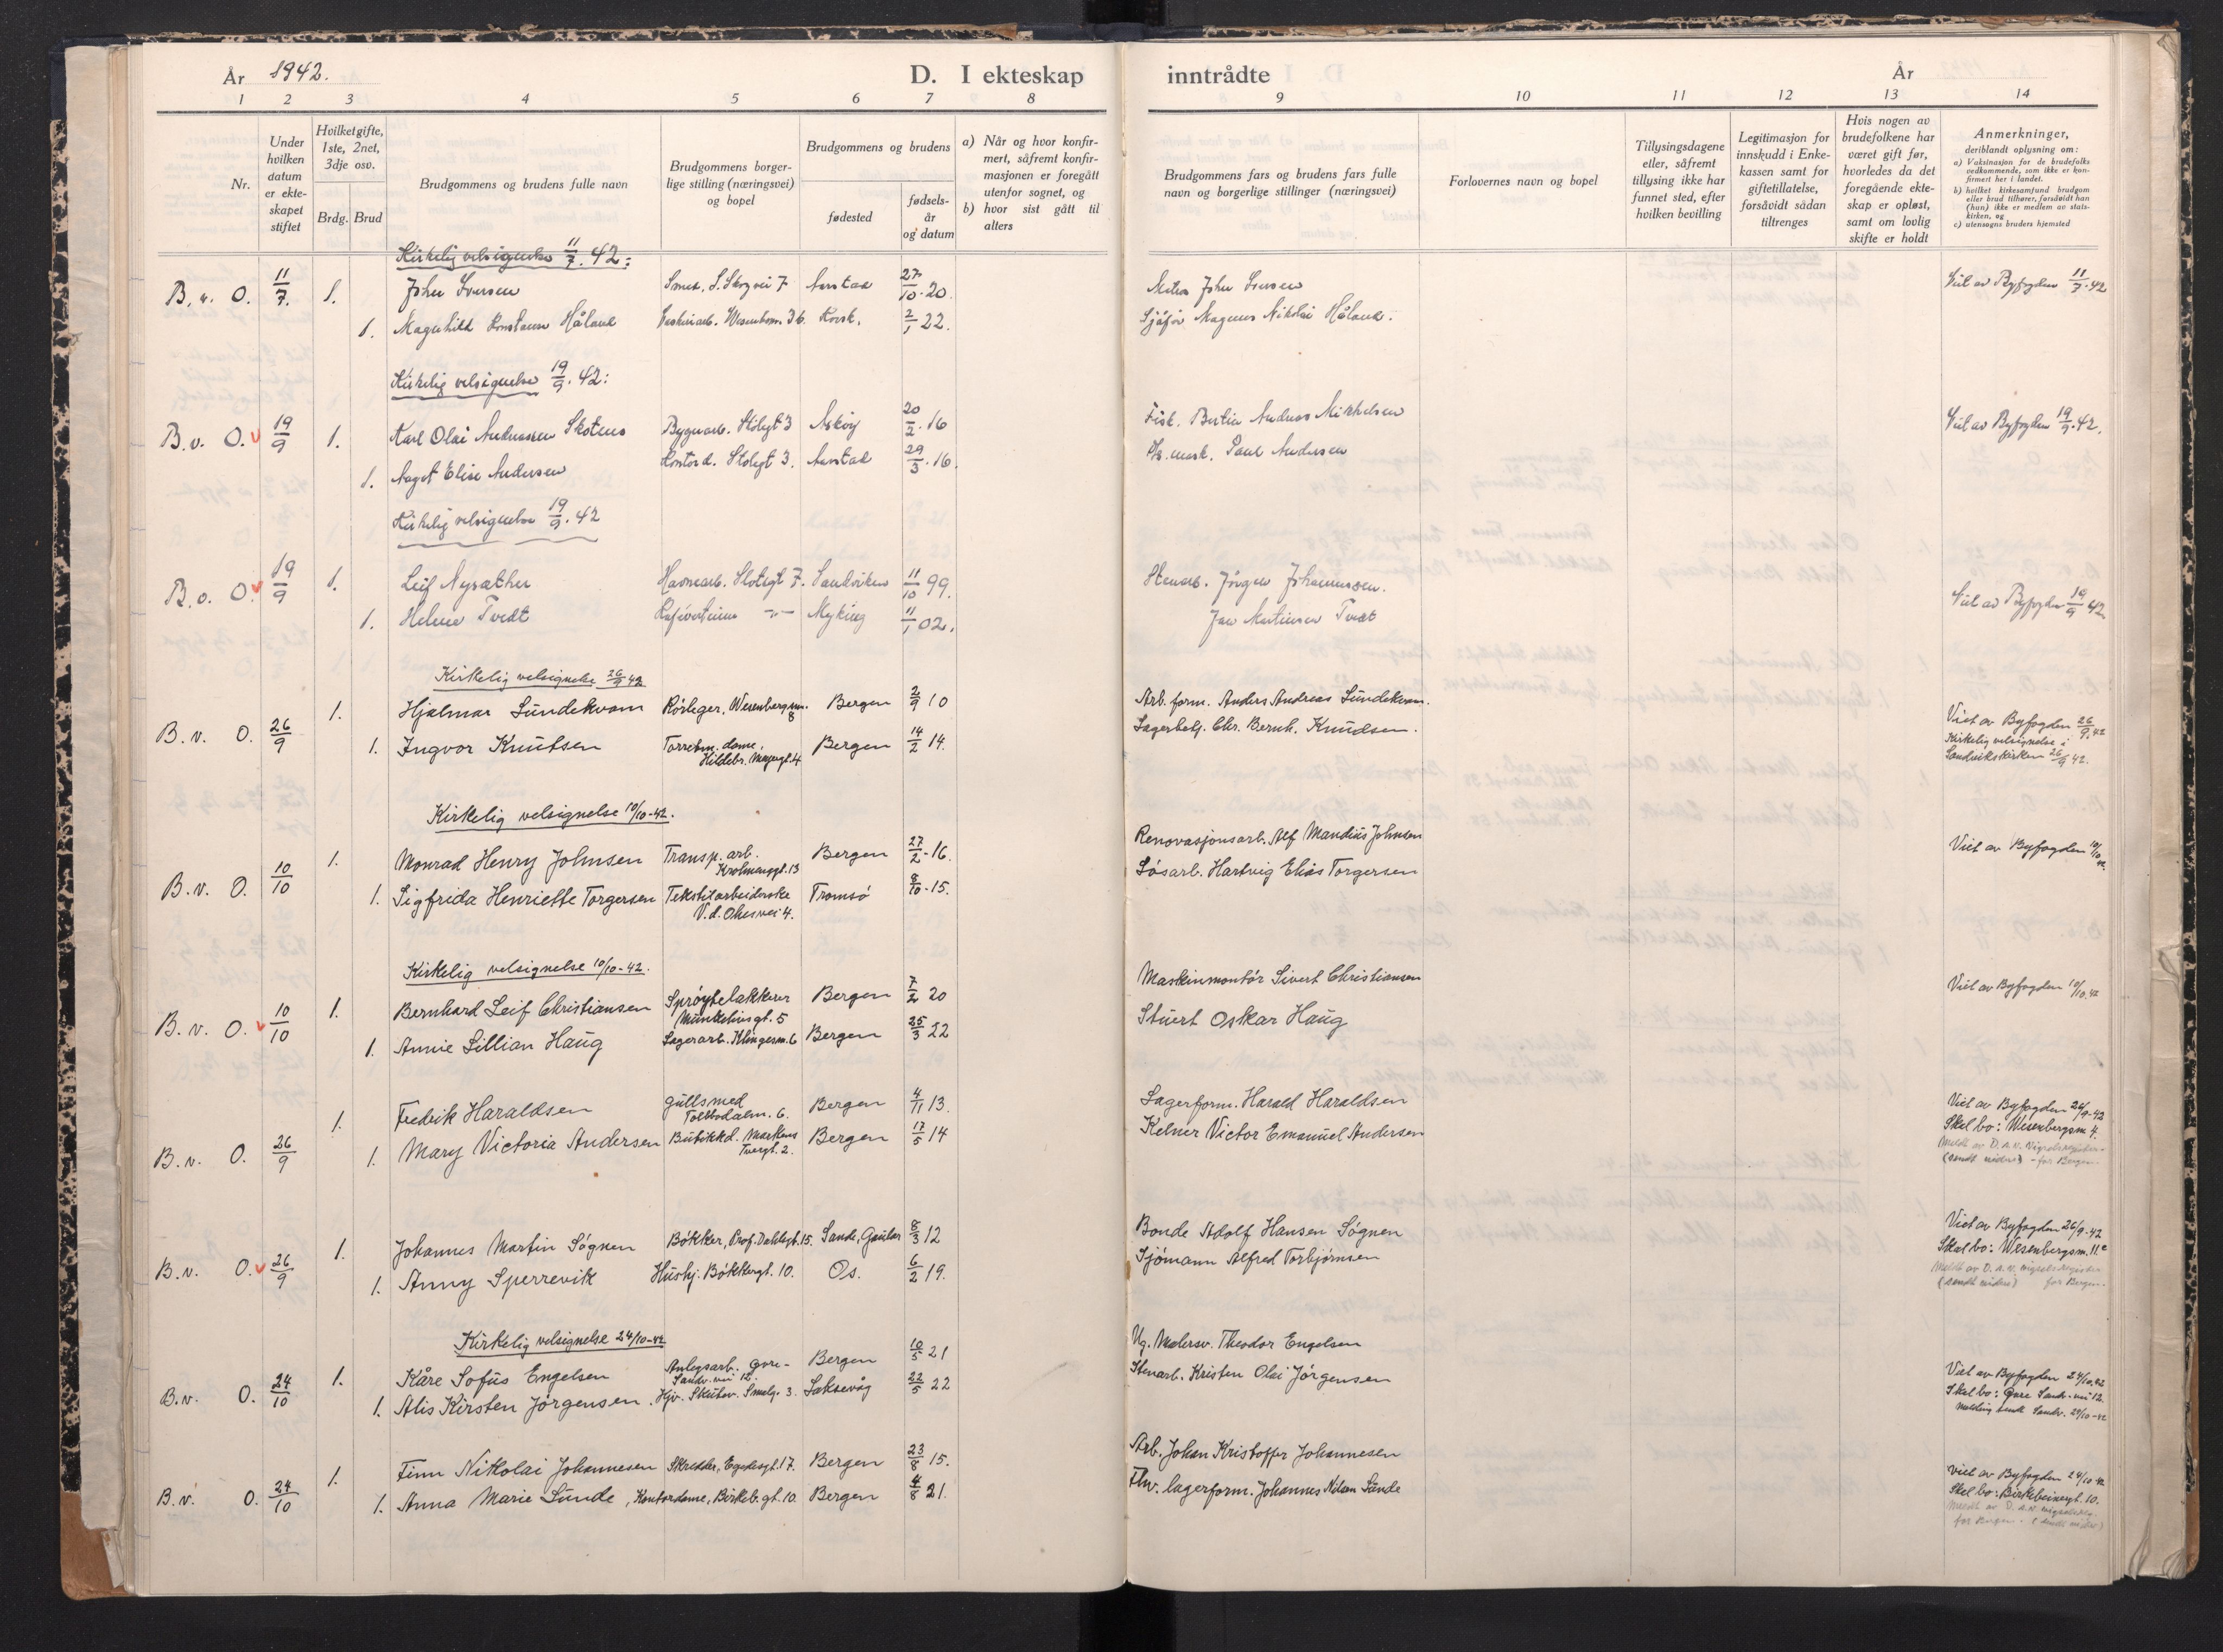 År 1942. D. I ekteskap
1 2 3 4 5 6 7 8
Nr.
Under hvilken datum er ekteskapet stiftet
Hvilket gifte, 1ste, 2net, 3dje osv.
Brdg. Brud
Brudgommens og brudens fulle navn
Brudgommens borgerlige stilling (næringsvei) og bopel
Brudgommens og brudens
fødested
fødselsår og datum
a) Når og hvor konfirmert, såfremt konfirmasjonen er foregått utenfor sognet, og
b) hvor sist gått til alters
Kirkelig velsignelse 11/7. 42:
B.v. O. 11/7. 1. John Iversen Smed, S. Skogvei 7 Aarstad 27/10. 20.
1. Magnhild Konstanse Håland 2/1 22.
Kirkelig velsignelse 19/9. 42:
B.v. O. v 19/9 1. Karl Olai Andreassen Skotnes Bygnarb. Stølegt 3 Askøy 20/2. 16
1. Aagot Elise Andersen Stølegt 3. Aarstad 29/3. 16.
Kirkelig velsignelse 19/9. 42
B.v. O. v 19/9 1. Leif Nysæther Havnearb. Stølegt 7. Sandviken 11/10 99.
1. Helene Tvedt -"- Myking 11/1 02.
Kirkelig velsignelse 26/9 42
B.v. O. 26/9 1. Hjalmar Sundekvam Rørleger, Wesenbergsm. 8 Bergen 2/9 10
1. Ingvor Knutsen Bergen 14/2 14.
Kirkelig velsignelse 10/10-42.
B.v. O. 10/10 1. Monrad Henry Johnsen Transp. arb. Krohnenggt. 13 Bergen 27/2-16.
1. Sigfrida Henriette Torgersen Tekstilarbeiderske Tromsø 8/10-15.
Kirkelig velsignelse 10/10-42.
B.v. O. v 10/10 1. Bernhard Leif Christiansen Sprøytelakkerer Munkehusgt. 5 Bergen 7/2 20
1. Annie Lillian Haug Lagerarb. Klingesm. 6 Bergen 25/3 22
B.v. O. 26/9 1. Fredrik Haraldsen gullsmed Tolbodalm. 6. Bergen 4/11 13.
1. Mary Victoria Andersen Butikkd. Markens Tvergt. 2. Bergen 17/5 14
B.v. O. v 26/9 1. Johannes Martin Søgnen Bøkker, Prof. Dahlsgt. 15. Sande, Gaular 8/3 12
1. Anny Sperrevik Hushj. Bøkkergt. 10. Os. 6/2 19.
Kirkelig velsignelse 24/10-42
B.v. O. 24/10 1. Kåre Sofus Engelsen Anlegsarb. Øvre-Sandv. vei 12. Bergen 10/5 21
1. Alis Kirsten Jørgensen. Hjv. Skutev. Smalg. 3. Laksevåg 22/5 22
B.v. O. 24/10 1. Finn Nikolai Johannesen Skredder, Egedesgt. 17. Bergen 23/8 15.
1. Anna Marie Sunde, Kontordame, Birkeb. gt. 10. Bergen 4/8 21.
inntrådte År
9 10 11 12 13 14
Brudgommens fars og brudens fars fulle navn og borgerlige stillinger (næringsvei)
Forlovernes navn og bopel
Tillysingsdagene eller, såfremt tillysing ikke har funnet sted, efter hvilken bevilling
Legitimasjon for innskudd i Enkekassen samt for giftetillatelse, forsåvidt sådan tiltrenges
Hvis nogen av brudefolkene har været gift før, hvorledes da det foregående ekteskap er opløst, samt om lovlig skifte er holdt
Anmerkninger, deriblandt oplysning om:
a) Vaksinasjon for de brudefolks vedkommende, som ikke er konfirmert her i landet.
b) hvilket kirkesamfund brudgom eller brud tilhører, forsåvidt han (hun) ikke er medlem av statskirken, og
c) utensogns bruders hjemsted
John Iversen Viet av Byfogden 11/7-42
Sjåfør Magnus Nikolai Håland.
Fisk. Bertin Andreas Mikkelsen Viet av Byfogden 19/9-42.
Paul Andersen
Stenarb. Jörgen Johannessen. Viet av Byfogden 19/9 42
Jan Martinsen Tvedt
Arb. form. Anders Andreas Sundekvam.
Lagerbetj. Chr. Bernh. Knudsen. Viet av Byfogden 26/9. 42
Kirkelig velsignelse i
Sandvikskirken 26/9 42.
Renovasjonsarb. Alf Mandius Johnsen Viet av Byfogden 10/10 42.
Løsarb. Hartvig Elias Torgersen
Maskinmontør Sivert Christiansen Viet av Byfogden 10/10.42
Stuert Oskar Haug
Lagerform. Harald Haraldsen Viet av Byfogden 26/9-42
Kelner Victor Emanuel Andersen Skal bo: Wesenbergsm 4.
Meldt av D.A.V. Vigselsregister
(sendt videre) - for Bergen
Bonde Adolf Hansen Søgnen Viet av Byfogden 26/9-42
Sjømann Alfred Torbjørnsen Skal bo: Wesenbergsm. 11c
Meldt av D.A.V. vigselsregister
(sendt videre) for Bergen.
Malersv. Theodor Engelsen
Stenarb. Kristen Olai Jørgensen Viet av Byfogden 24/10.42
Skal bo: Øvre Sandv. vei 12.
Melding sendt Sandv. 29/10-42
Arb. Johan Kristoffer Johannesen Viet av Byfogden 24/10-42
Fhv. lagerform. Johannes Nilsen Sunde Skal bo: Birkebeinergt. 10.
Meldt av D.A.V. vigselsreg.
for Bergen. (sendt videre)